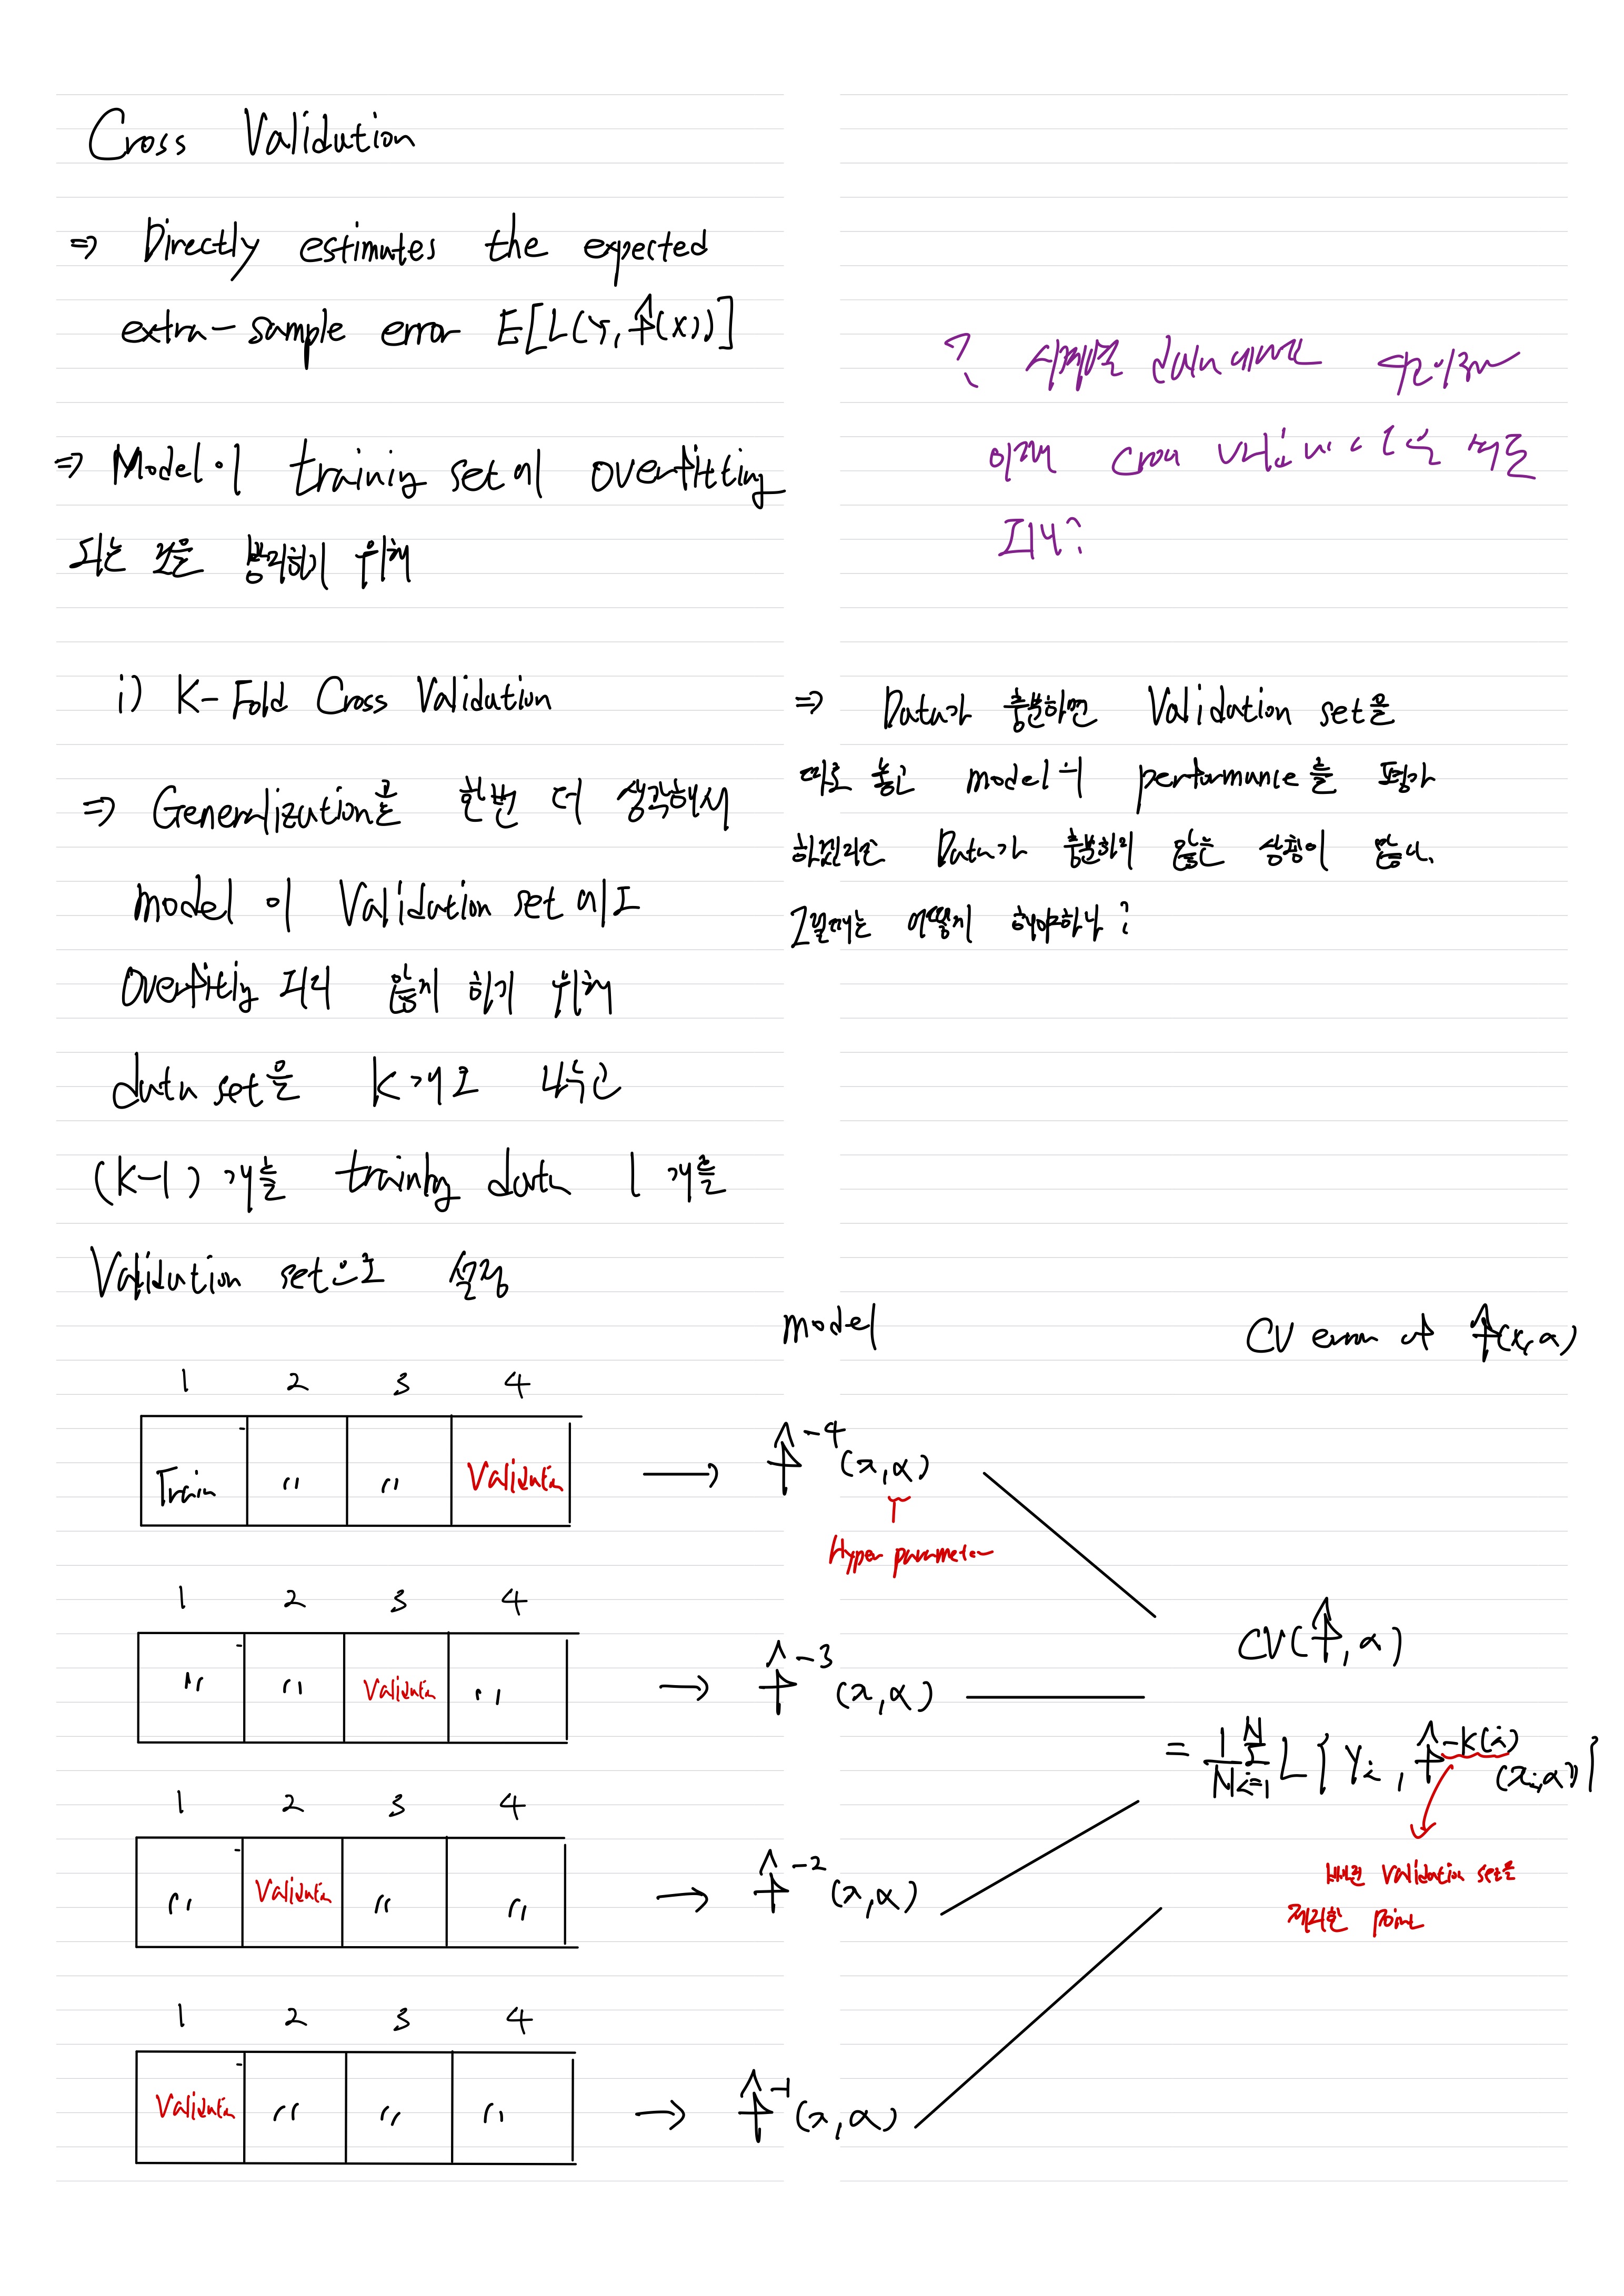 Cross Validation
⇒ Directly estimates the expected
extra-sample error E[L(Y, f̂(X))]
⇒ Model이 training set에 overfitting
되는 것을 방지하기 위해
? 시계열 data에서도
이게 cross 써도
되나?
i) K-Fold Cross Validation
⇒ Generalization을 한번 더 생각해서
model 이 Validation set 에도
Overfitting 되지 않게 하기 위해
data set을 K개로 나누고
(K-1) 개를 training data 1 개를
Validation set으로 설정
⇒ Data가 충분하면 Validation set을
따로 놓고 model의 performance를 평가
하겠지만 Data가 충분하지 않은 상황이 많다.
그럴때는 어떻게 해야하나?
model
CV error of f̂(x, α)
1 2 3 4
Train 〃 〃 Validation
→ f̂⁻⁴(x, α)
Hyper parameter
1 2 3 4
〃 〃 Validation 〃
→ f̂⁻³(x, α)
CV(f̂, α)
= 1/N Σᵢ₌₁ᴺ L{Yᵢ, f̂^{-K(i)}(xᵢ, α)}
1 2 3 4
〃 Validation 〃 〃
→ f̂⁻²(x, α)
Validation set을
제외한 point
1 2 3 4
Validation 〃 〃 〃
→ f̂⁻¹(x, α)